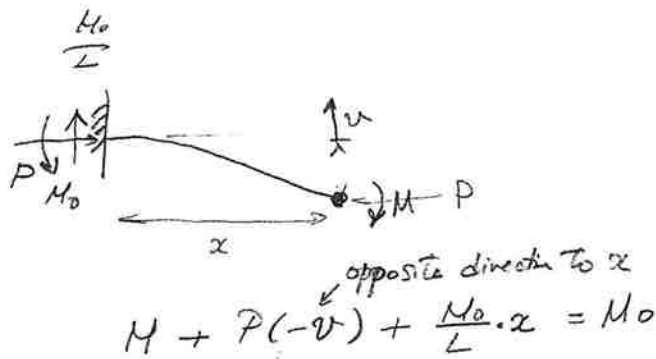 M₀
L
v
P
M₀
M
P
x
opposite direction to x
M + P(-v) + M₀/L · x = M₀